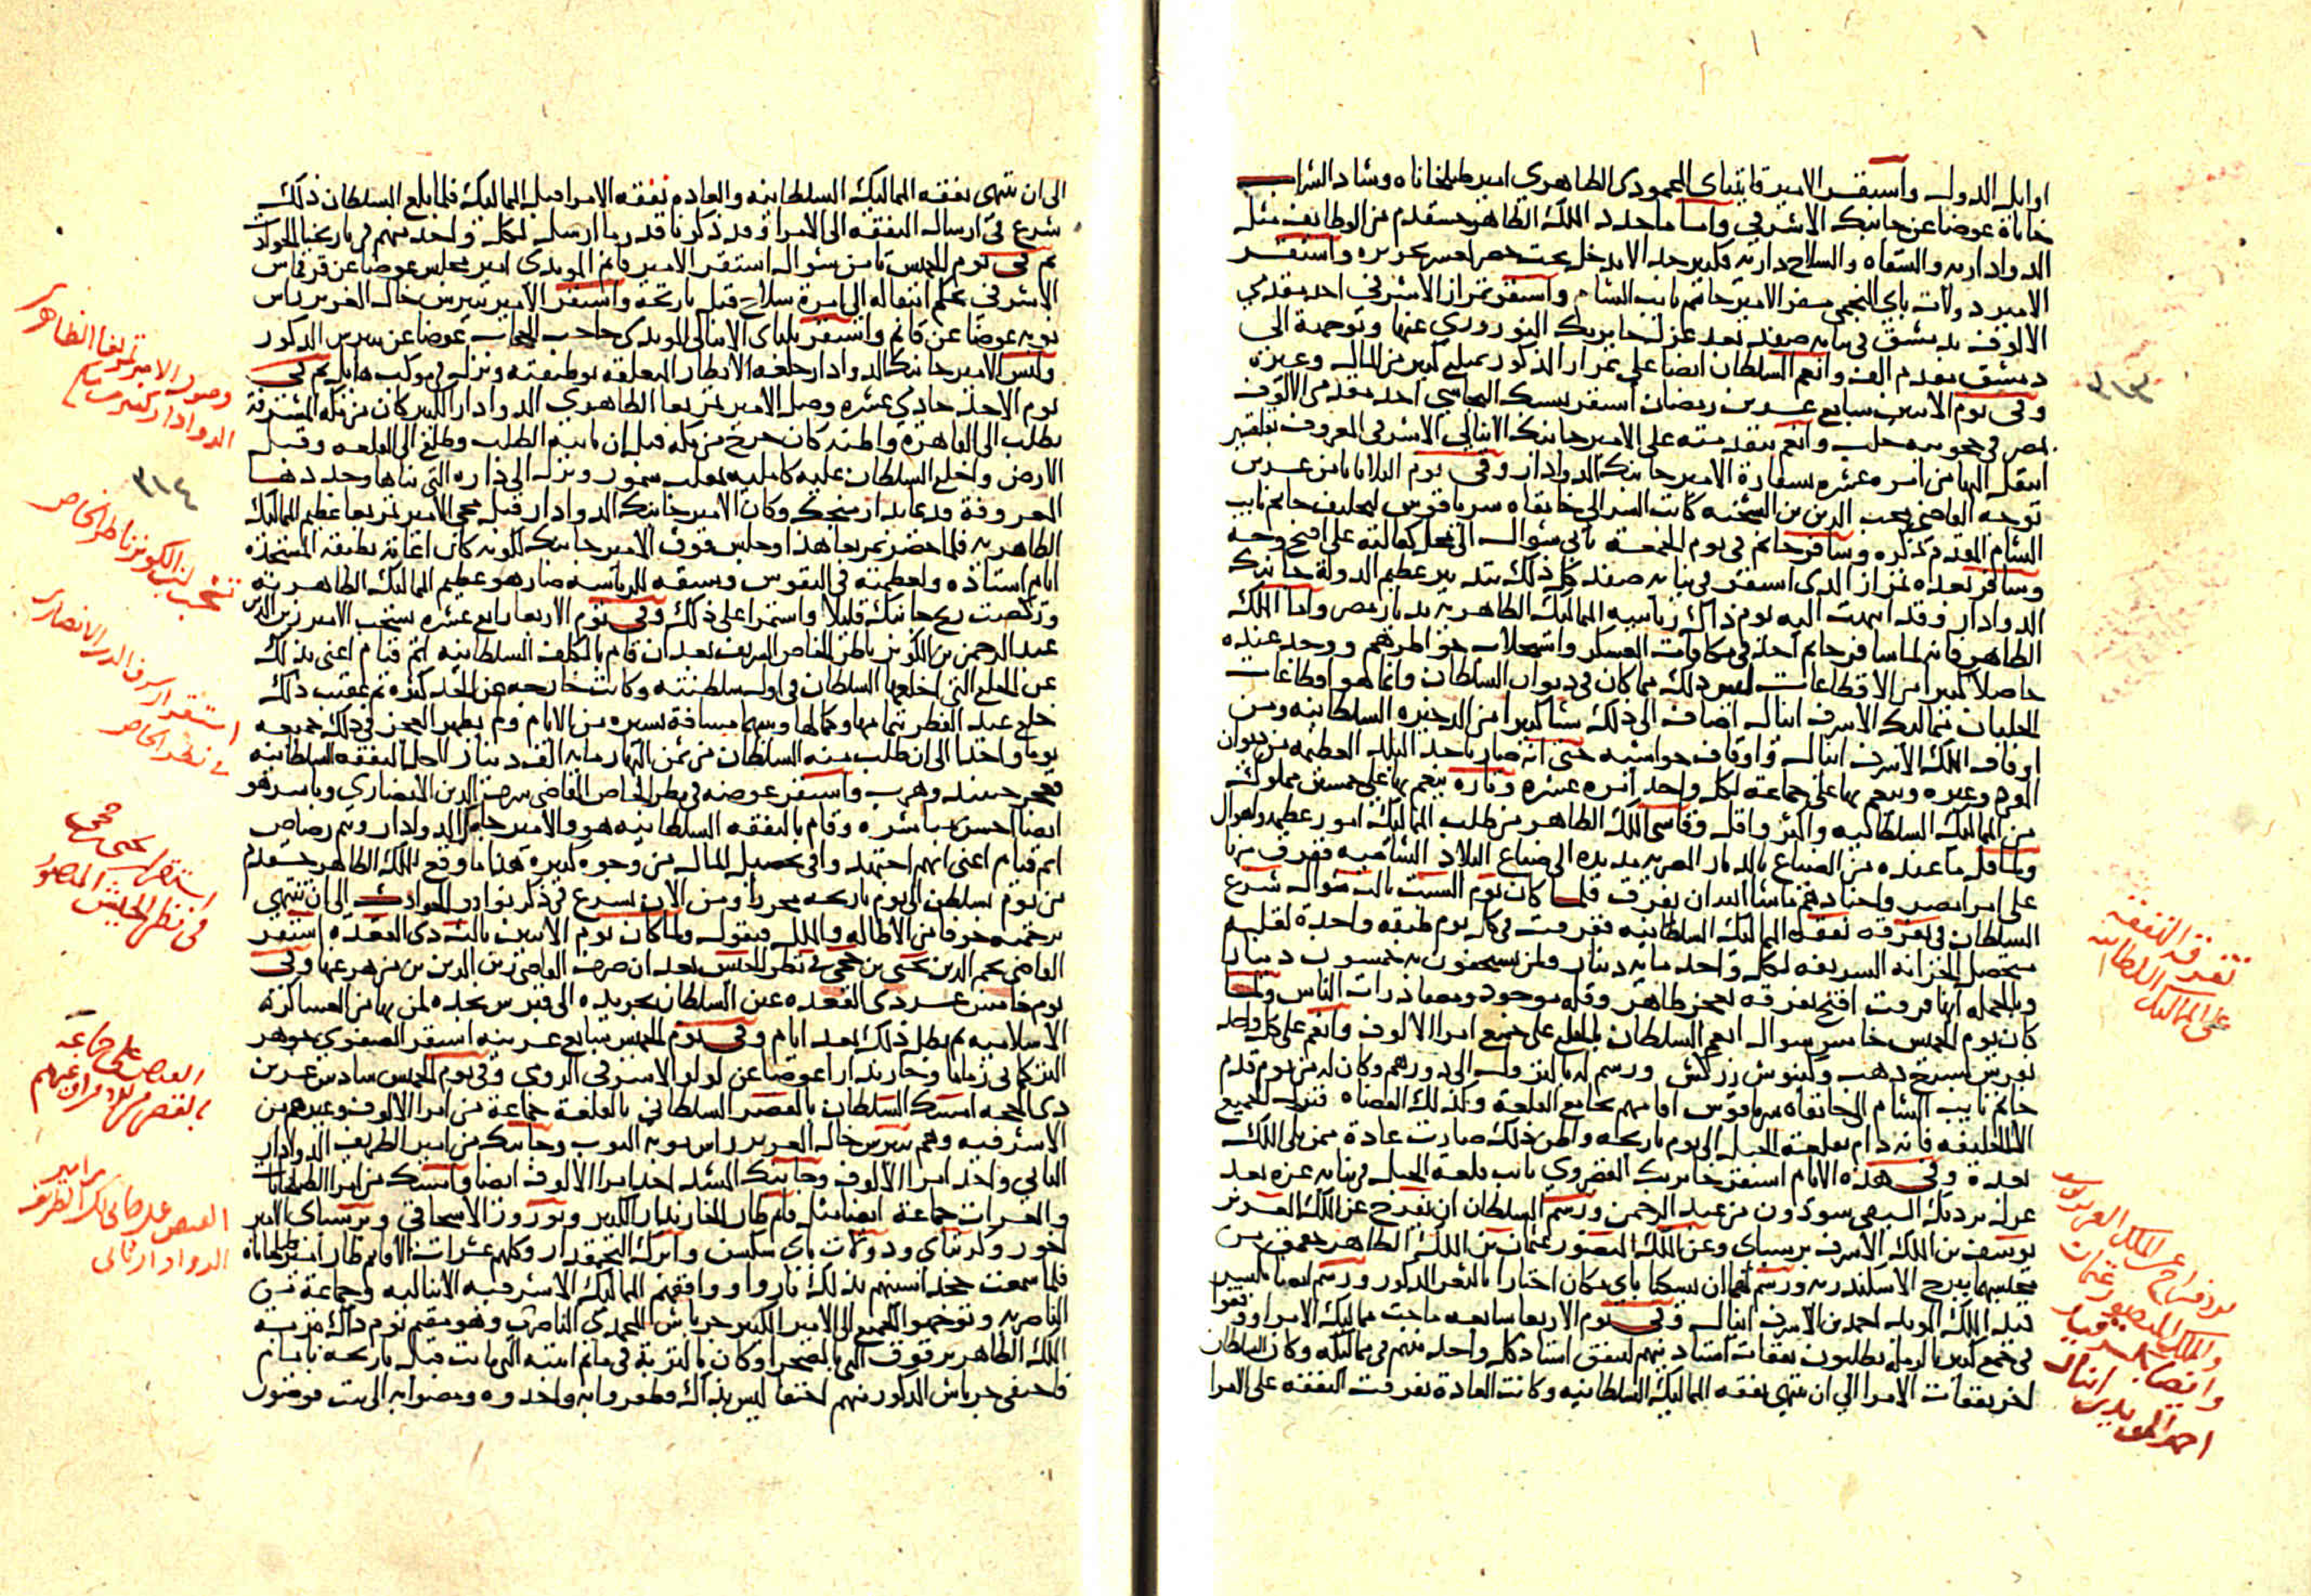 اوايل الدولة واستقر الامير قايتباى المحمودى الظاهري امير طبلخاناه وشاد الشراب
خاناة عوضا عن جانبك الاشرفي واما ما جدد الملك الظاهر خشقدم من الوظايف مثل
الدواداريه والسقاه والسلاح داريه فكثير جدا لا يدخل تحت حصر لعسر تحريره واستقر
الامير دولات باي النجمي مسفر الامير جانم نايب الشام واستقر تمراز الاشرفي احد مقدمي
الالوف بدمشق في نيابه صفد بعد عزل خاير بك النوروزي عنها وتوجهه الى
دمشق مقدم الف وانعم السلطان ايضا على تمراز المذكور بمبلغ كبير من المال وغيره
وفي يوم الاثنين سابع عشرين رمضان استقر بيبرس احد مقدمي الالوف
بمصر في حجوبيه حلب وانعم بتقدمته على الامير جانبك الاينالي الاشرفي المعروف بقلقسيز
انتقل اليها من امره عشره بسفارة الامير جانبك الدوادار وفي يوم الثلاثا ثامن عشرين
توجه القاضي محب الدين بن الشحنه كاتب السر الى خانقاه سرياقوس لتحليف جانم نايب
الشام المقدم ذكره وسافر جانم في يوم الجمعة ثاني شوال الى محل كفالته على اقبح وجه
وسافر بعده تمراز الذى استقر في نيابه صفد كل ذلك بتدبير عظيم الدولة جانبك
الدوادار وقد انتهت اليه يوم ذاك رياسه المماليك الظاهريه بديار مصر واما الملك
الظاهر فانه لما سافر جانم اخذ في مكافات العسكر واستجلاب خواطرهم ووجد عنده
حاصلا كثيرا من الاقطاعات ليس ذلك مما كان في ديوان السلطان وانما هو اقطاعات
الجلبان مماليك الاشرف اينال اضاف الى ذلك شيا كثيرا من الدخيره السلطانيه ومن
اوقاف الملك الاشرف اينال واوقاف حواشيه حتى انه صار ياخذ البلد العظيمه من ديوان
المفرد وغيره وينعم بها على جماعة لكل واحد امره عشره وتاره ينعم بها على خمسين مملوك
من المماليك السلطانيه واكثر واقل وقاسى الملك الظاهر من طلب المماليك امور عظيمه واهوال
ولما قل ما عنده من الضياع بالديار المصريه مد يده الى ضياع البلاد الشاميه ففرق منها
على امرا مصر واجنادهم ما شا الله ان يفرق فلما كان يوم السبت ثالث شوال شرع
السلطان في تفرقه نفقه المماليك السلطانيه ففرقت في كل يوم طبقه واحدة لقله
متحصل الخزانه الشريفه لكل واحد مايه دينار ولمن يستحقون به خمسون دينارا
وبالجمله انها فرقت اقبح تفرقه لعجز ظاهر وقله موجود ومصادرات الناس ولما
كان يوم الخميس خامس شوال انعم السلطان بالخلع على جميع امرا الالوف وانعم على كل واحد
بفرس بسرج ذهب وكنبوش زركش ورسم له بالنزول الى دورهم وكان له من يوم قدم
جانم نايب الشام الى خانقاه سرياقوس اقامتهم بجامع القلعة وكذلك القضاه فنزل الجميع
الا الخليفه فانه دام بقلعة الجبل الى يوم تاريخه واظن ذلك صارت عادة ممن يلى الملك
بعده وفي هذه الايام استقر خاير بك القصروي نايب قلعه الجبل في نيابه غزه بعد
عزل بردبك السيفي سودون من عبد الرحمن ورسم السلطان ان يفرج عن الملك العزيز
يوسف بن الملك الاشرف برسباى وعن الملك المنصور عثمان بن الملك الظاهر جقمق من
محبسهما ببرج الاسكندريه ورسم لهما ان يسكنا باى مكان اختارا بالثغر المذكور ورسم ايضا بكسر
قيد الملك المويد احمد بن الاشرف اينال وفي يوم الاربعا سابعه ماجت مماليك الامرا ووقفوا
في جمع كبير بالرميلة يطلبون نفقات استادينهم لينفق استاد كل واحد منهم في مماليكه وكان السلطان
اخر نفقات الامرا الى ان تنتهى نفقه المماليك السلطانيه وكانت العادة تفرقت النفقه على الامرا
٣١٣
تفرقة النفقة
على المماليك السلطانيه
الافراج عن الملك العزيز يوسف
والملك المنصور عثمان
وايضا كسر قيد
احمد المويد بن اينال
الى ان تنتهى نفقه المماليك السلطانيه والعاده نفقه الامرا قبل المماليك فلما بلغ السلطان ذلك
شرع في ارسال النفقه الى الامرا وقد ذكرنا قدر ما ارسل لكل واحد منهم في تاريخنا الحوادث
ثم في يوم الخميس ثامن شوال استقر الامير قانم المويدى امير مجلس عوضا عن قرقماس
الاشرفي بحكم انتقاله الى امرة سلاح قبل تاريخه واستقر الامير بيبرس خال العزيز راس
نوبه عوضا عن قانم واستقر يلباى الاينالى المويدى حاجب الحجاب عوضا عن بيبرس المذكور
ولبس الامير جانبك الدوادار خلعه الانظار المتعلقه بوظيفته ونزل في موكب هايل ثم في
يوم الاحد حادي عشره وصل الامير تمربغا الظاهري الدوادار الكبير كان من مكه المشرفة
بطلب الى القاهرة واظنه كان خرج من مكه قبل ان ياتيه الطلب وطلع الى القلعه وقبل
الارض واخلع السلطان عليه كامليه بمقلب سمور ونزل الى داره التي بناها وجددها
المعروفة قديما بدار منجك وكان الامير جانبك الدوادار قبل مجى الامير تمربغا عظيم المماليك
الظاهريه فلما حضر تمربغا هذا وجلس فوق الامير جانبك لكونه كان اغاته بطبقه المستجده
ايام استاذه ولعظمته في النفوس وسبقه للرياسه صار هو عظيم المماليك الظاهريه
وركضت ريح جانبك قليلا واستمرا على ذلك وفي يوم الاربعا رابع عشره تسحب الامير زين الدين
عبد الرحمن بن الكويز ناظر الخاص الشريف بعد ان قام بالكلف السلطانيه اتم قيام اعنى بذلك
عن الخلع التي اخلعها السلطان في اول سلطنته وكانت خارجه عن الحد كثره ثم عقيب ذلك
خلع عيد الفطر بتمامها وكمالها وبينهما مسافة يسيره من الايام ولم يظهر العجز في ذلك جميعه
يوما واحدا الى ان طلب منه السلطان من ثمن البهار مايه الف دينار لاجل النفقه السلطانيه
فعجز حينئذ وهرب واستقر عوضه في نظر الخاص القاضي شرف الدين الانصاري وباشر هو
ايضا احسن مباشره وقام بالنفقه السلطانيه هو والامير جانبك الدوادار وتنم رصاص
اتم قيام اعنى انهم اجتهدوا في تحصيل المال من وجوه كثيره هذا ما وقع للملك الظاهر خشقدم
من يوم تسلطن الى يوم تاريخه محررا ومن الان نشرع في ذكر نوادر الحوادث الى ان تنتهي
ترجمته خوفا من الاطاله والملل فنقول ولما كان يوم الاثنين ثالث ذى القعده استقر
القاضي نجم الدين يحيى بن حجي في نظر الجيش بعد ان صرف القاضي زين الدين بن مزهر عنها وفي
يوم خامس عشر ذى القعده عين السلطان تجريده الى قبرس نجده لمن بها من العساكر
الاسلاميه ثم بطل ذلك بعد ايام وفي يوم الخميس سابع عشرينه استقر الصفوي جوهر
التركماني زماما وخازندارا عوضا عن لولو الاشرفي الرومي وفي يوم الخميس سادس عشرين
ذى الحجه امسك السلطان بالقصر السلطاني بالقلعة جماعة من امرا الالوف وغيرهم من
الاشرفيه وهم بيبرس خال العزيز راس نوبه النوب وجانبك من امير الظريف الدوادار
الثاني واحد امرا الالوف وجانبك المشد احد امرا الالوف ايضا وامسك من امرا الطبلخانات
والعشرات جماعة ايضا مثل قانم طاز الخازندار الكبير ونوروز الاسحاقي وبرسباى امير
اخور وكرتباي ودولات باي سكسن وابرك البجمقدار وكلهم عشرات الا قانم طاز امير طبلخاناة
فلما سمعت خجداشيتهم بذلك ثاروا ووافقهم المماليك الاشرفيه الايناليه وجماعة من
الناصريه وتوجهوا الجميع الى الامير الكبير جرباش المحمدي الناصري وهو مقيم يوم ذاك بتربة
الملك الظاهر برقوق التي بالصحرا وكان بالتربة في ماتم ابنته التي ماتت قبل تاريخه بايام
فاختفى جرباش المذكور منهم اختفا ليس بذاك فظفروا به واخدوه ومضوا به الى بيت قوصون
وصول الامير تمربغا الظاهري
الدوادار كبير
٣١٤
تسحب ابن الكويز ناظر الخاص
استقرار شرف الدين الانصاري
في نظر الخاص
استقرار يحيى بن حجي
في نظر الجيش المنصور
القبض على جماعة
بالقصر من الامرا وغيرهم
القبض على جانبك الظريف
الدوادار ثاني